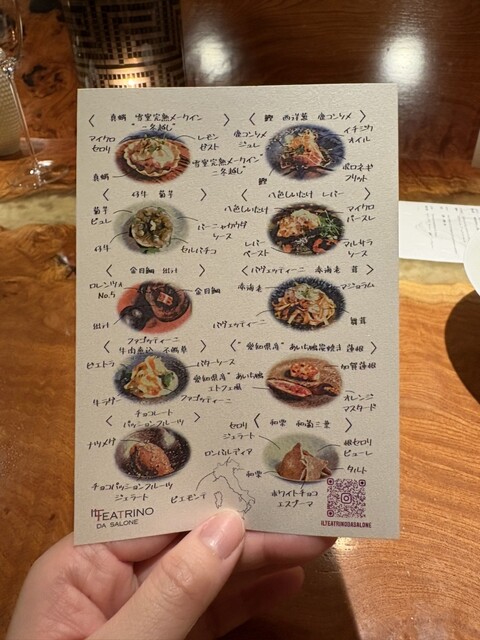 〈 真蛸 雪室完熟メークイン "二冬越し" 〉
マイクロ
セロリ
レモン
ゼスト
真蛸
雪室完熟メークイン
"二冬越し"
〈 鰹 西洋葱 鹿コンソメ 〉
鹿コンソメ
ジュレ
イチジク
オイル
鰹
ポロネギ
フリット
〈 仔牛 菊芋 〉
菊芋
ピュレ
バーニャカウダ
ソース
仔牛
セルバチコ
〈 八色しいたけ レバー 〉
八色しいたけ
マイクロ
パースレー
レバー
ペースト
マルサラ
ソース
〈 金目鯛 出汁 〉
ロレンツォ
No.5
金目鯛
出汁
〈 パヴェッティーニ 赤海老 茸 〉
赤海老
マジョラム
パヴェッティーニ
舞茸
〈 ファゴッティーニ
牛肉煮込 不断草 〉
ビエトラ
バターソース
牛ラグー
ファゴッティーニ
〈 "愛知県産" あいち鴨炭焼き 蓮根 〉
"愛知県産" あいち鴨
エトフェ風
加賀蓮根
オレンジ
マスタード
〈 チョコレート
パッションフルーツ 〉
ナツメグ
チョコパッションフルーツ
ジェラート
〈 和栗 和菊三葉 〉
セロリ
ジェラート
根セロリ
ピューレ
和栗
タルト
ホワイトチョコ
エスプーマ
ロンバルディア
ピエモンテ
IL TEATRINO
DA SALONE
ILTEATRINODASALONE